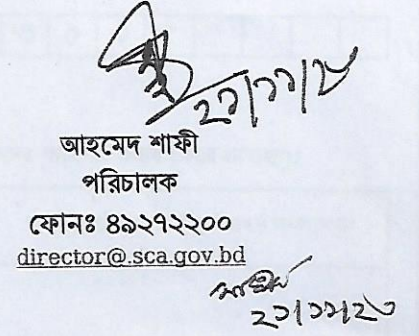 ২১/১১/২৩
আহমেদ শাফী
পরিচালক
ফোনঃ ৪৯২৭২২০০
director@.sca.gov.bd
২১/১১/২৩